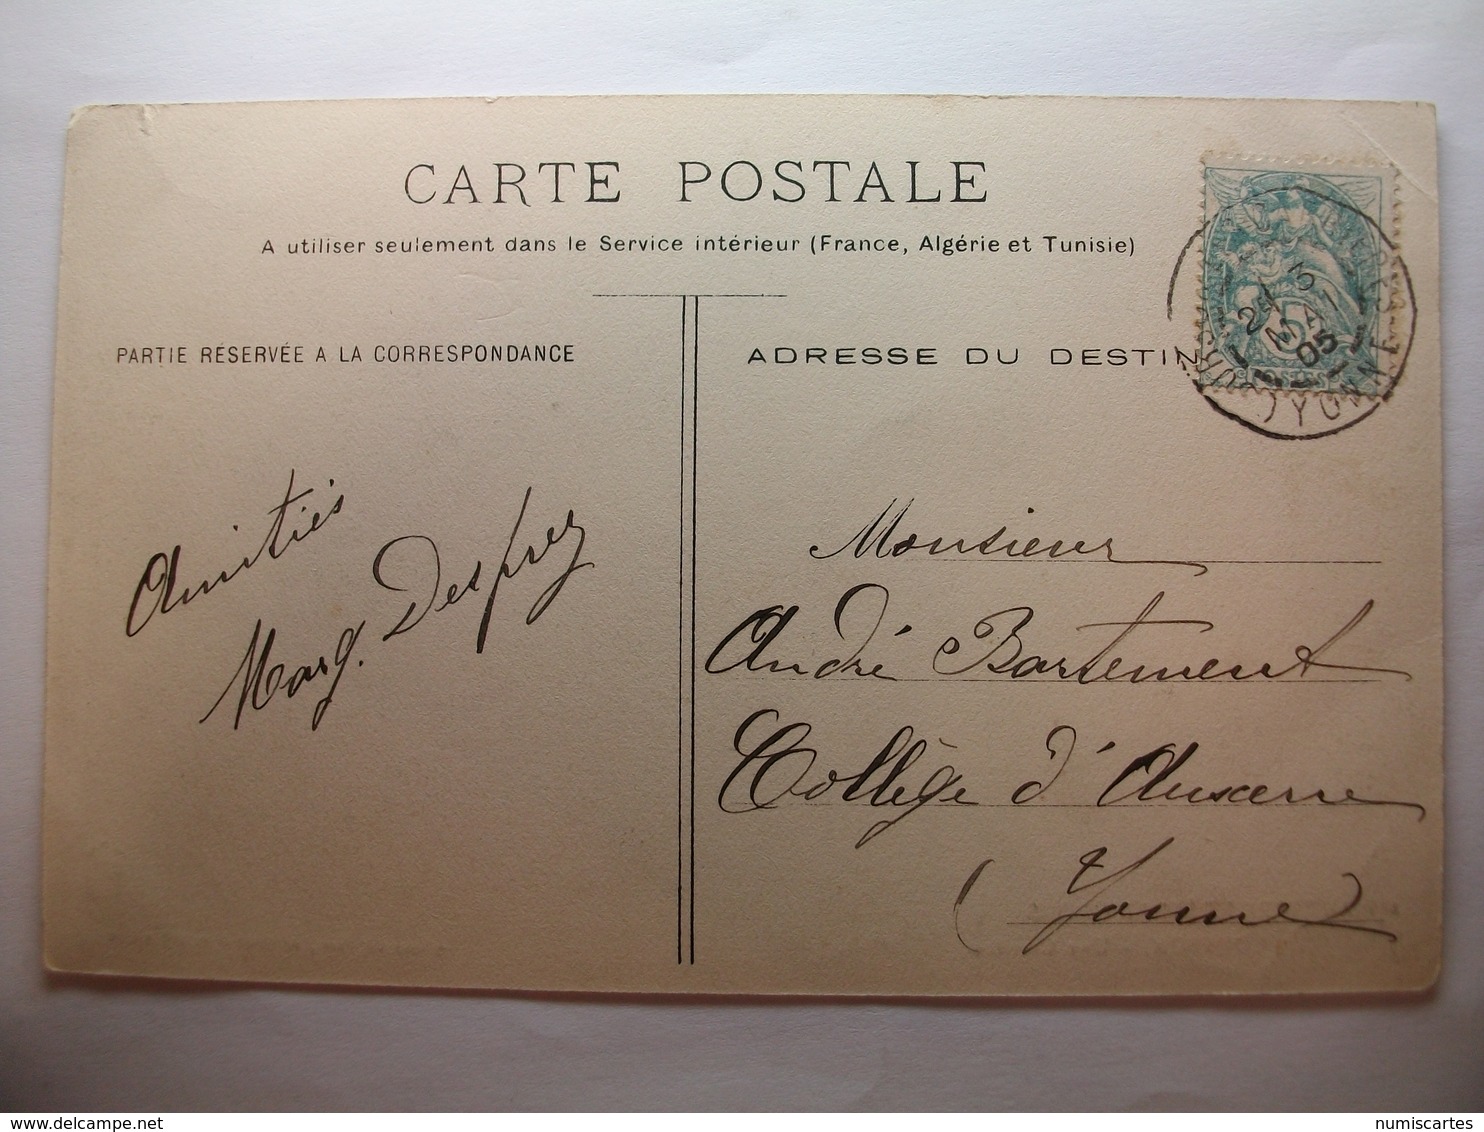 CARTE POSTALE
A utiliser seulement dans le Service intérieur (France, Algérie et Tunisie)
PARTIE RÉSERVÉE A LA CORRESPONDANCE
Amitiés
Marg. Desprez
ADRESSE DU DESTIN
3
MAI
05
YONNE
5
POSTES
Monsieur
André Bartement
Collège d'Auxerre
(Yonne)
numiscartes
www.delcampe.net